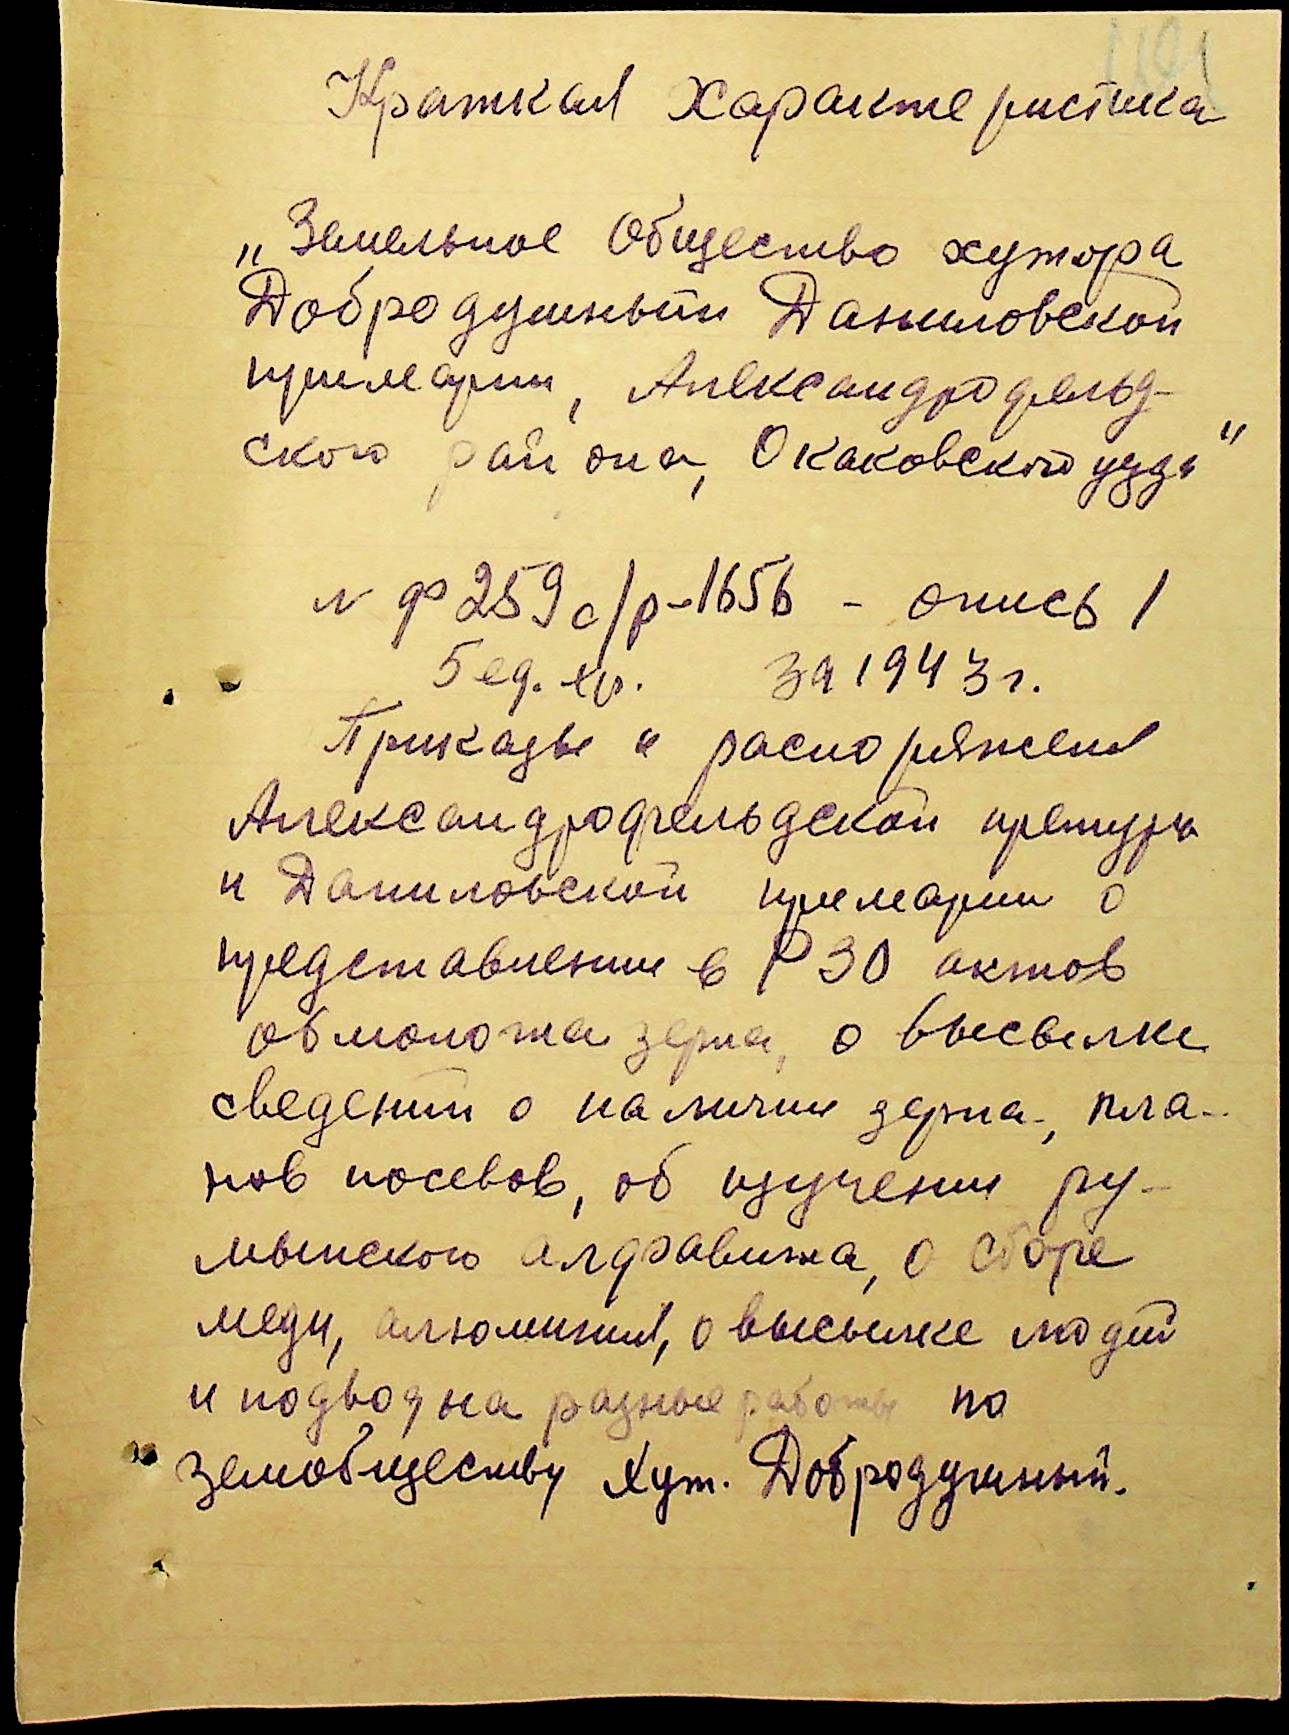 Краткая характеристика
„Земельное Общество хутора
Добродушный Даниловской
примарии, Александрофельд-
ского района, Очаковского уезда"
N ф 259 с/р-1656 - опись 1
5 ед. хр. за 1943 г.
Приказы и распоряжения
Александрофельдской претуры
и Даниловской примарии о
представлении в РЗО актов
обмолота зерна, о высылке
сведений о наличии зерна, пла-
нов посевов, об изучении ру-
мынского алфавита, о сборе
меди, алюминия, о высылке людей
и подвод на разные работы по
земобществу хут. Добродушный.